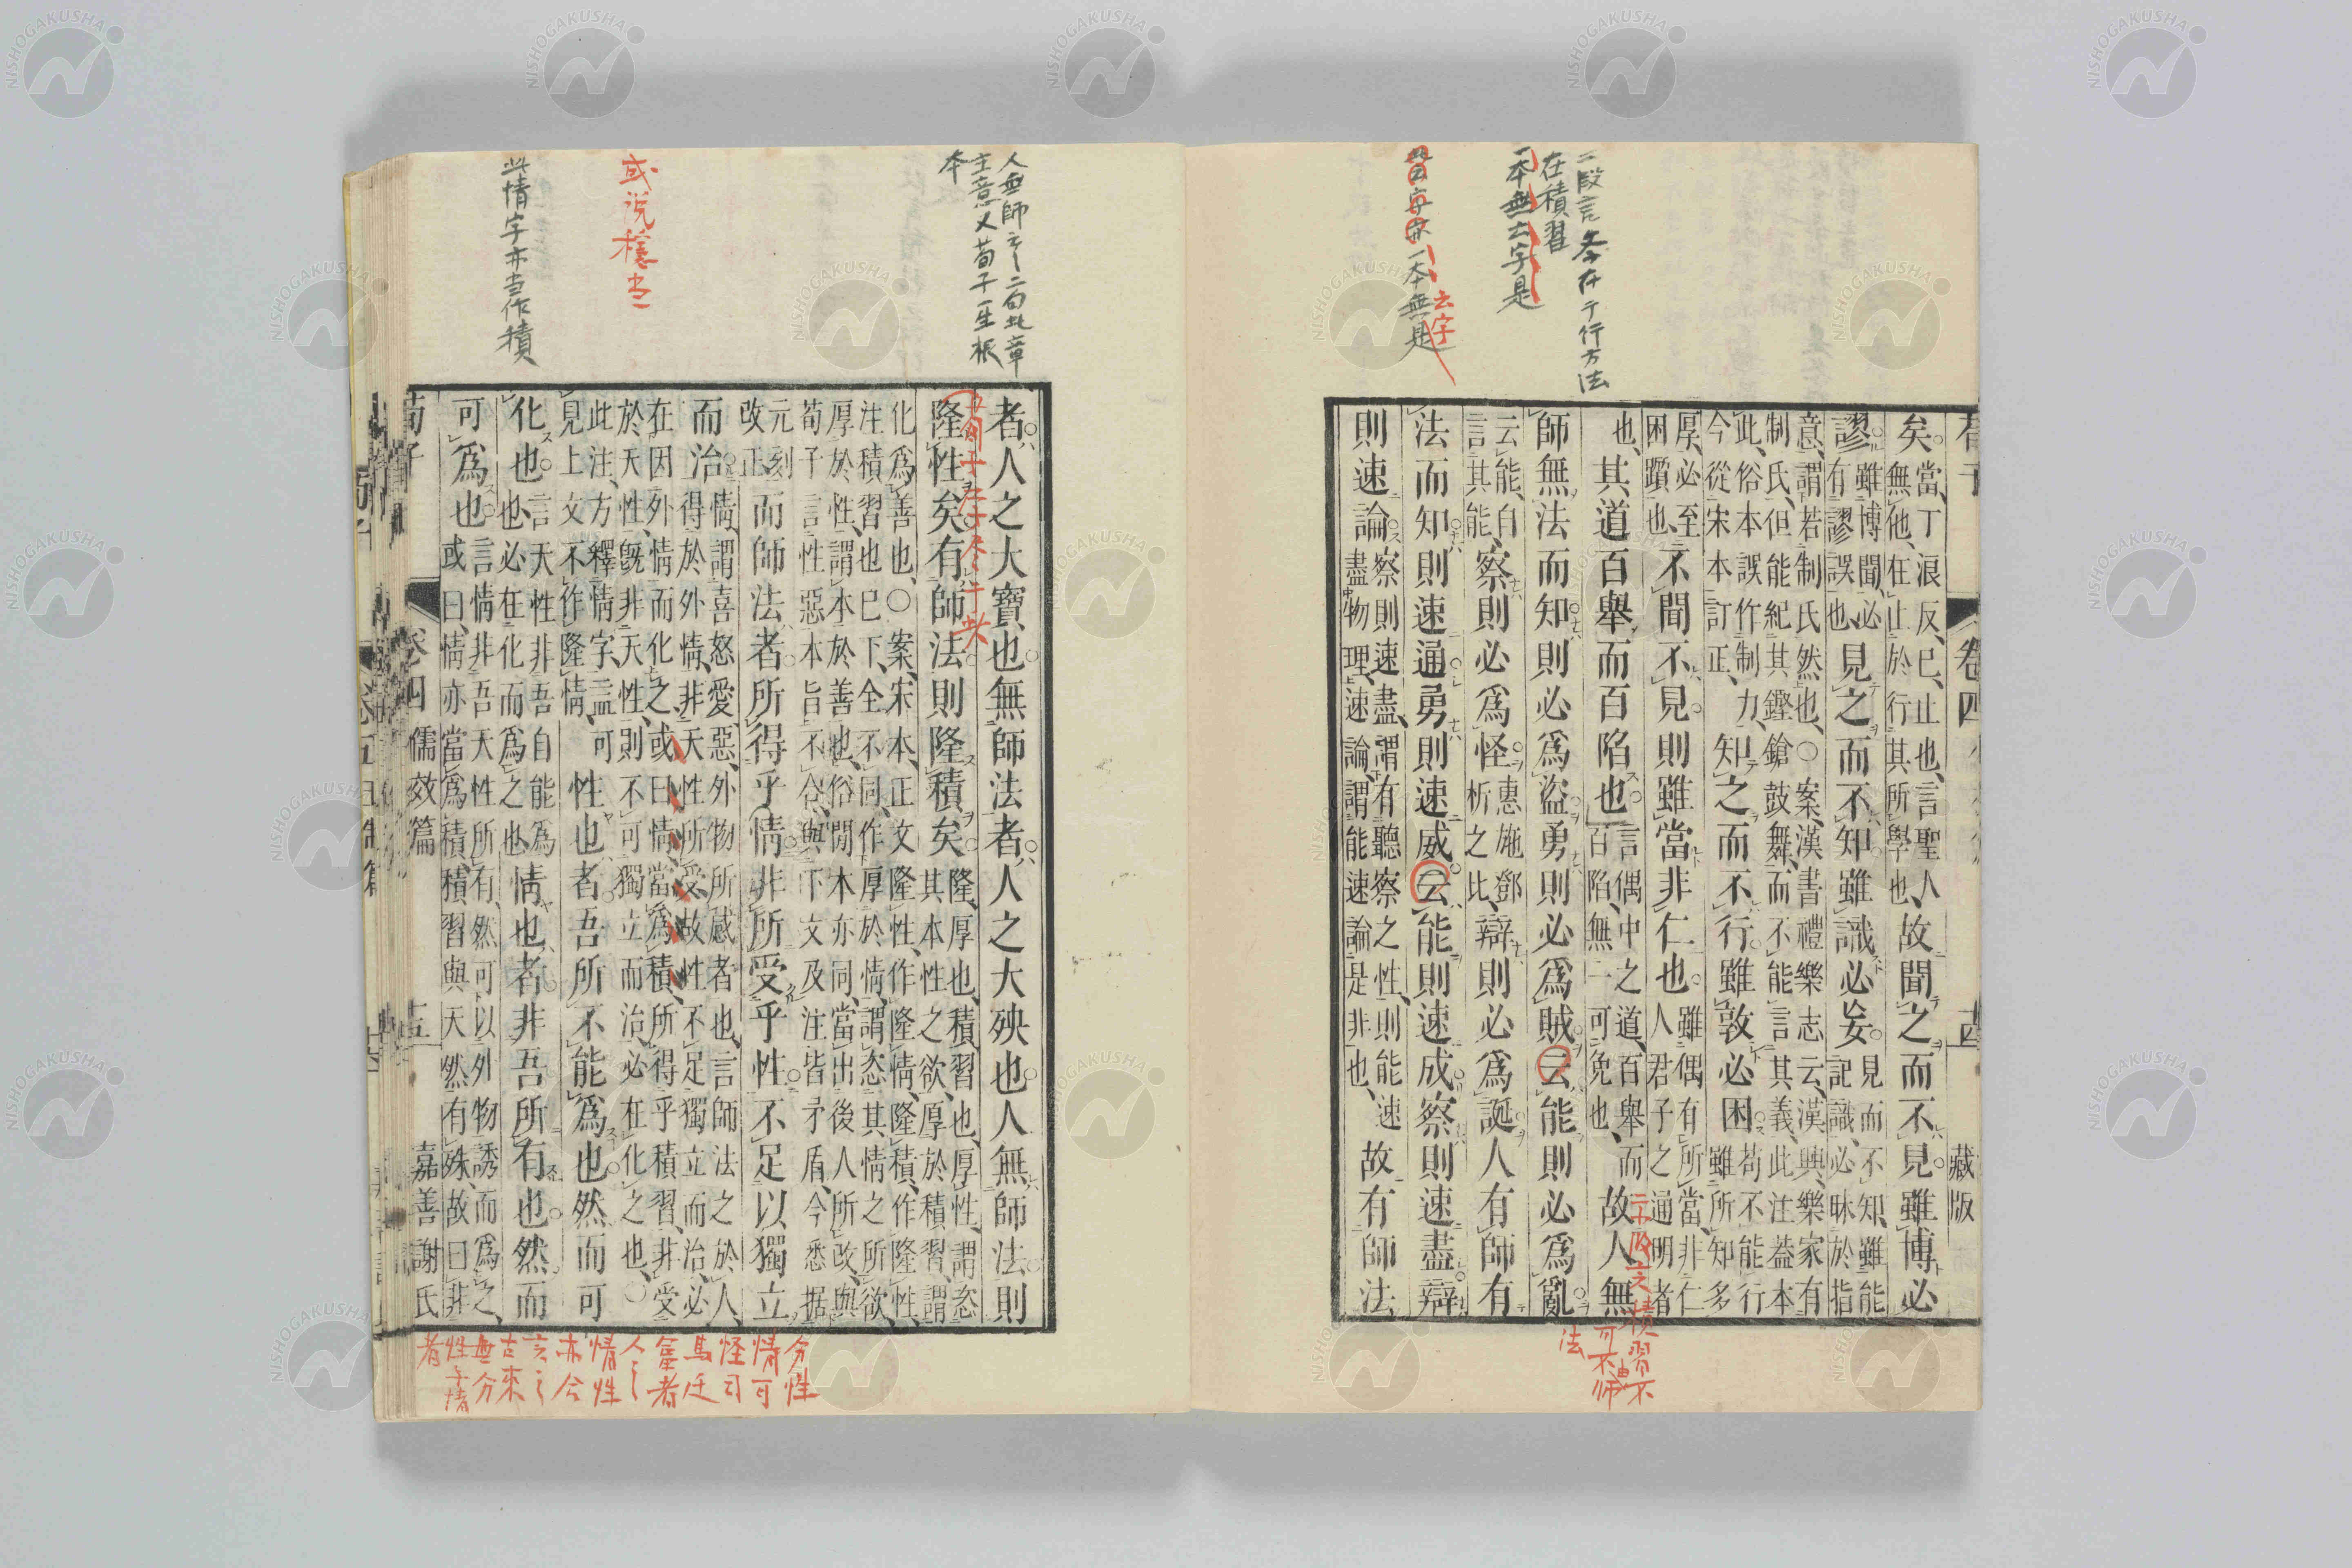 荀子
卷四
藏版
矣當丁浪反、巳、止也、言聖人無他、在止於行其所學也、故聞之而不見雖博必
謬雖博聞、必有謬誤也見之而不知雖識必妄見而不知、雖能記識、必昧於指
意、謂若制氏然也、○案、漢書禮樂志云、漢興、樂家有制氏、但能紀其鏗鎗鼓舞、而不能言其義、此注葢本
此、俗本誤作制力、今從宋本訂正、知之而不行雖敦必困苟不能行雖所知多
厚、必至困躓也、不聞不見則雖當非仁也雖偶有所當、非仁人君子之通明者
也、其道百舉而百陷也言偶中之道、百舉而百陷、無一可免也、故人無
師無法而知則必爲盜勇則必爲賊云能則必爲亂
云能、自言其能、察則必爲怪惠施鄧析之比、辯則必爲誕人有師有
法而知則速通勇則速威云能則速成察則速盡辯
則速論察則速盡、謂有聽察之性、則能速盡物理、速論、謂能速論是非也、故有師法
二段言参在于行方法
在積習
一本無云字是
云字
法
者、人之大寶也無師法者、人之大殃也人無師法則
隆性矣有師法則隆積矣隆、厚也、積習也、厚性、謂恣其本性之欲、厚於積習、謂
化爲善也、○案、宋本、正文隆性、作隆情、隆積、作隆性、注積習也巳下、全不同、作厚於情、謂恣其情之所欲、
厚於性、謂本於善也、俗閒本亦同、當出後人所改、與荀子言性惡本旨不合、與下文及注皆矛盾、今悉据
元刻改正而師法者所得乎情非所受乎性不足以獨立
而治情、謂喜怒愛惡、外物所感者也、言師法之於人、得於外情、非天性所受、故性不足獨立而治、必
在因外情而化之、或曰、情當爲積、所得乎積習、非受於天性、旣非天性、則不可獨立而治、必在化之也、○
此注、方釋情字、盖可見上文不作隆情、性也者吾所不能爲也然而可
化也言天性非吾自能爲也、必在化而爲之也情也者非吾所有也然而
可爲也言情非吾天性所有、然可以外物誘而爲之、或曰、情亦當爲積、積習與天然有殊、故曰非
荀子
卷四
儒效篇
十五
嘉善謝氏
人無師云々二句此章
主意又荀子一生根
本
或說穩当
此情字亦当作積
分性
情可
怪司
馬廷
人々
情性
亦今
言之
古來
無分
性与情
者